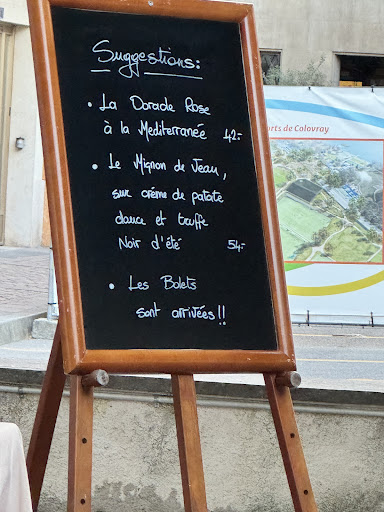 Suggestions:
• La Dorade Rose
à la Mediterraneé 42.-
• Le Mignon de Veau,
sur crème de patate
douce et truffe
Noir d'été 54.-
• Les Bolets
sont arrivées !!
orts de Colovray